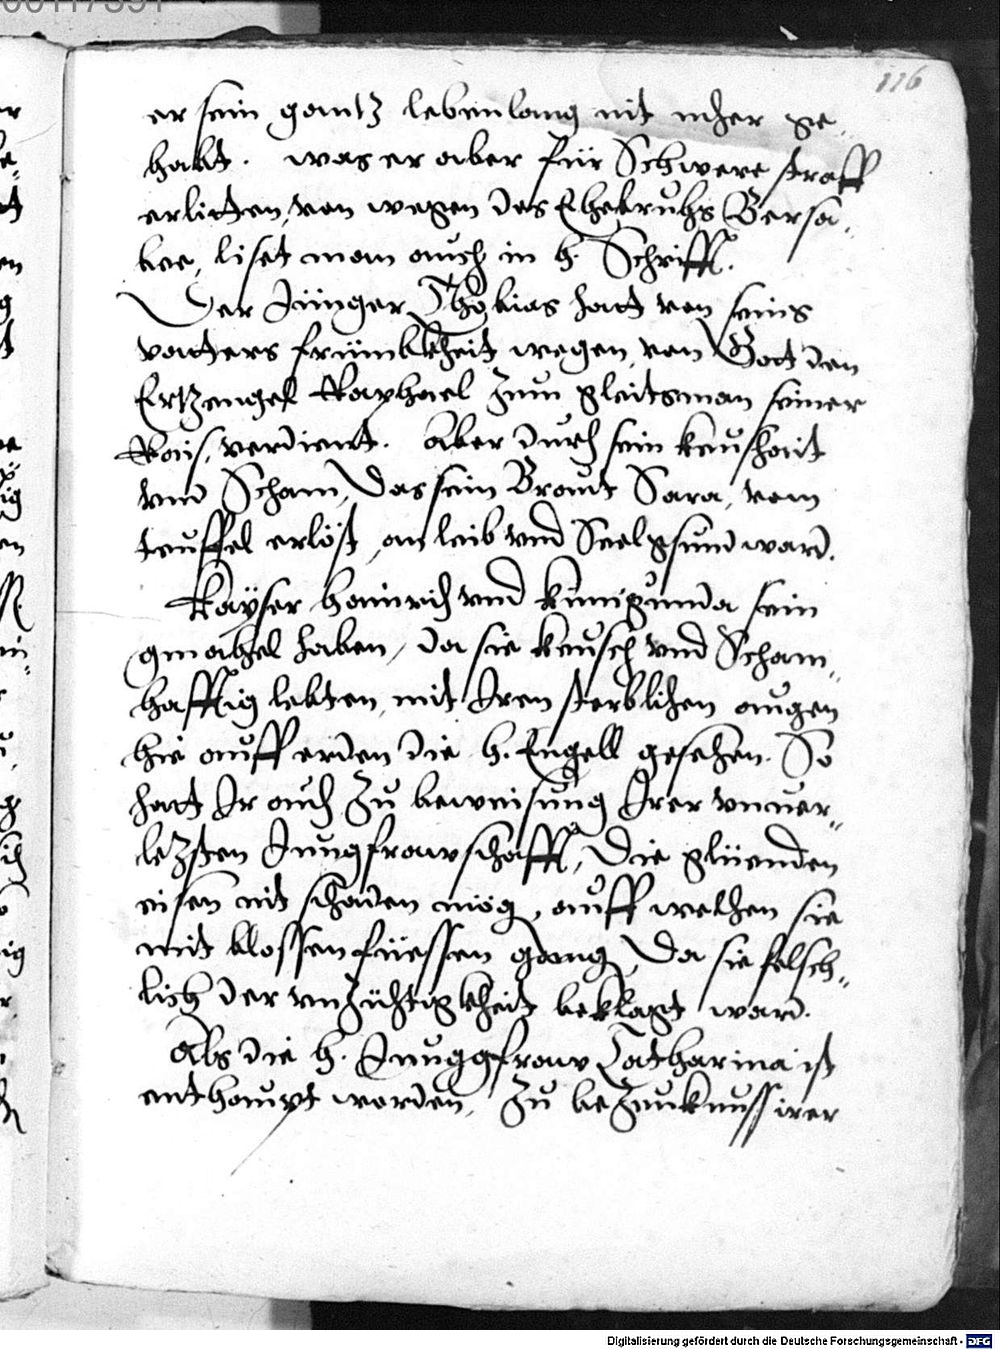 116
er sein gantz lebenlang nit mher ge„
habt. was er aber für Schwere straff
erlitten, von wegen des Ehebruhs Bersa„
bee, liset man auch in h. Schrifft.
Der Jünger Thobias hatt von seins
vatters frümbkheit wegen, von Gott den
Ertzengel Raphael zum gleitsman seiner
Rais, verdient. Aber durch sein keuschait
vnd Scham, das sein Braut Sara, vom
teuffel erlöst, an leib vnd Seel gsund ward.
Kayser hainrich vnd Kunigunda sein
gmahel haben, da sie keusch vnd Scham„
hafftig lebten, mit Iren sterblichen augen
hie auff erden die h. Engell gesehen. So
hatt Ir auch zu beweisung Irer vnuer„
letzsten Jungfrawschafft, die glüenden
eisen nit schaden mög, auff welhen sie
mit blossen füessen gang, da sie felsch„
lich der vnzüchtigkheit beklagt ward.
Als die h. Junggfraw Catharina ist
enthaupt worden, zu bezeuknuss irer
Digitalisierung gefördert durch die Deutsche Forschungsgemeinschaft - DFG